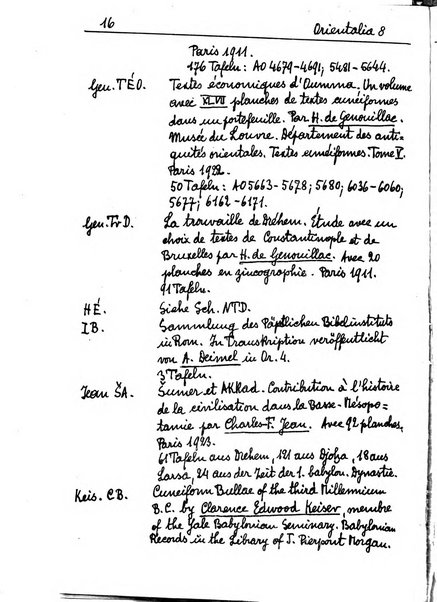 16 Orientalia 8
Paris 1911.
176 Tafeln: AO 4679-4691; 5481-5644.
Gen. TÉO. Textes économiques d'Oumma. Un volume
avec XLVII planches de textes cunéiformes
dans un portefeuille. Par H. de Genouillac.
Musée du Louvre. Département des anti-
quités orientales. Textes cunéiformes. Tome V.
Paris 1922.
50 Tafeln: AO 5663-5678; 5680; 6036-6060;
5677; 6162-6171.
Gen. TrD. La trouvaille de Dréhem. Étude avec un
choix de textes de Constantinople et de
Bruxelles par H. de Genouillac. Avec 20
planches en zincographie. Paris 1911.
91 Tafeln.
HÉ. Siehe Sch. NTD.
IB. Sammlung des Päpstlichen Bibelinstituts
in Rom. In Transkription veröffentlicht
von A. Deimel in Or. 4.
3 Tafeln.
Jean ŠA. Šumer et Akkad. Contribution à l'histoire
de la civilisation dans la Basse-Mésopo-
tamie par Charles-F. Jean. Avec 92 planches.
Paris 1923.
61 Tafeln aus Drehem, 121 aus Djoha, 18 aus
Larsa, 24 aus der Zeit der 1. babylon. Dynastie.
Keis. C.B. Cuneiform Bullae of the third Millennium
B.C. by Clarence Edwood Keiser, membre
of the Yale Babylonian Seminary. Babylonian
Records in the Library of J. Pierpont Morgan.